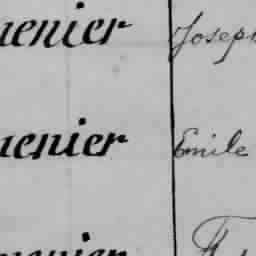 uenier Joseph
uenier Emile
uenier